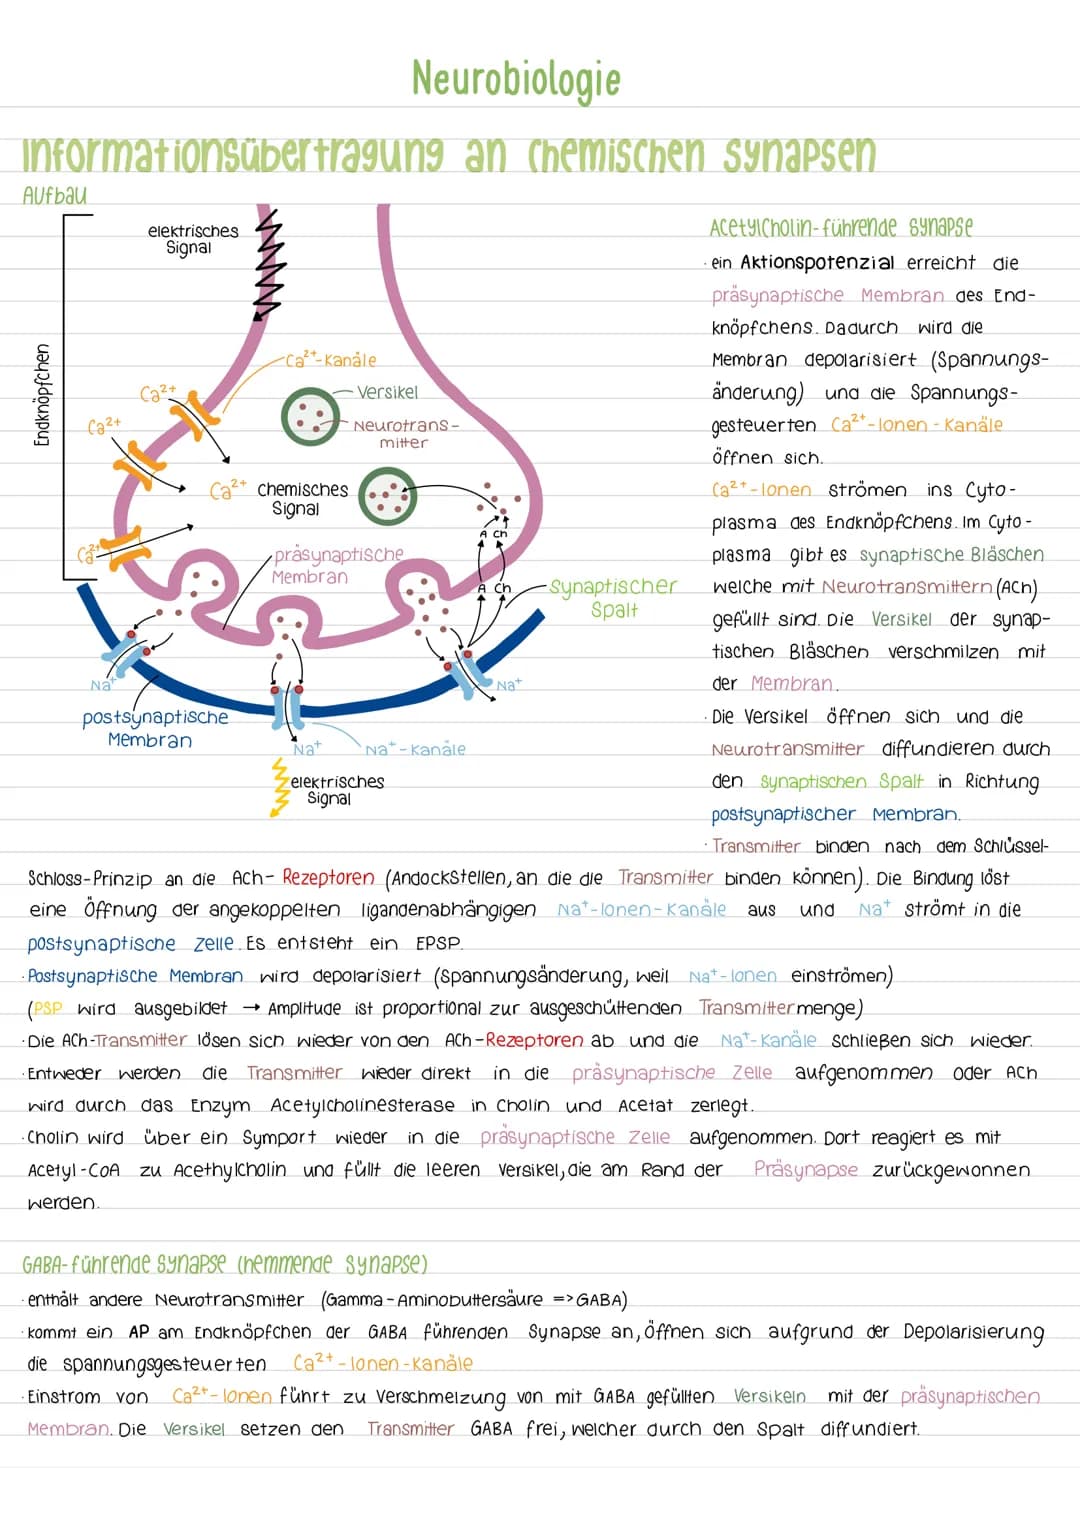 Neurobiologie
Informationsübertragung an chemischen Synapsen
Aufbau
elektrisches
Signal
Endknöpfchen
Ca²⁺-Kanäle
Versikel
Neurotrans-
mitter
Ca²⁺
Ca²⁺
Ca²⁺
chemisches
Signal
Ca²⁺
präsynaptische
Membran
A Ch
A Ch
Synaptischer
Spalt
Na⁺
Na⁺
postsynaptische
Membran
Na⁺
Na⁺-Kanäle
elektrisches
Signal
Acetylcholin-führende Synapse
· ein Aktionspotenzial erreicht die
präsynaptische Membran des End-
knöpfchens. Dadurch wird die
Membran depolarisiert (Spannungs-
änderung) und die Spannungs-
gesteuerten Ca²⁺-Ionen-Kanäle
öffnen sich.
Ca²⁺-Ionen strömen ins Cyto-
plasma des Endknöpfchens. Im Cyto-
plasma gibt es synaptische Bläschen
welche mit Neurotransmittern (ACh)
gefüllt sind. Die Versikel der synap-
tischen Bläschen verschmilzen mit
der Membran.
· Die Versikel öffnen sich und die
Neurotransmitter diffundieren durch
den synaptischen Spalt in Richtung
postsynaptischer Membran.
· Transmitter binden nach dem Schlüssel-
Schloss-Prinzip an die ACh-Rezeptoren (Andockstellen, an die die Transmitter binden können). Die Bindung löst
eine Öffnung der angekoppelten ligandenabhängigen Na⁺-Ionen-Kanäle aus und Na⁺ strömt in die
postsynaptische Zelle. Es entsteht ein EPSP.
· Postsynaptische Membran wird depolarisiert (Spannungsänderung, weil Na⁺-Ionen einströmen)
(PSP wird ausgebildet → Amplitude ist proportional zur ausgeschüttenden Transmittermenge)
· Die ACh-Transmitter lösen sich wieder von den ACh-Rezeptoren ab und die Na⁺-Kanäle schließen sich wieder.
· Entweder werden die Transmitter wieder direkt in die präsynaptische Zelle aufgenommen oder ACh
wird durch das Enzym Acetylcholinesterase in Cholin und Acetat zerlegt.
· Cholin wird über ein Symport wieder in die präsynaptische Zelle aufgenommen. Dort reagiert es mit
Acetyl-CoA zu Acethylcholin und füllt die leeren Versikel, die am Rand der Präsynapse zurückgewonnen
werden.
GABA-führende Synapse (hemmende Synapse)
· enthält andere Neurotransmitter (Gamma-Aminobuttersäure => GABA)
· kommt ein AP am Endknöpfchen der GABA führenden Synapse an, öffnen sich aufgrund der Depolarisierung
die spannungsgesteuerten Ca²⁺-Ionen-Kanäle
· Einstrom von Ca²⁺-Ionen führt zu Verschmelzung von mit GABA gefüllten Versikeln mit der präsynaptischen
Membran. Die Versikel setzen den Transmitter GABA frei, welcher durch den Spalt diffundiert.